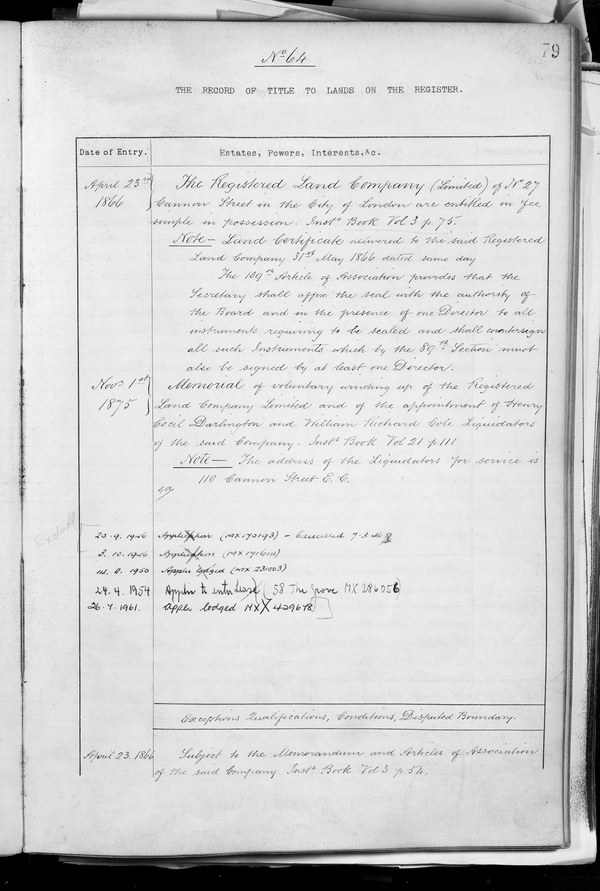 79
No 64
THE RECORD OF TITLE TO LANDS ON THE REGISTER.
Date of Entry. Estates, Powers, Interests, &c.
April 23rd 1866
The Registered Land Company (Limited) of No 27
Cannon Street in the City of London are entitled in fee
simple in possession. Inst. Book Vol 3 p. 75.
Note – Land Certificate delivered to the said Registered
Land Company 31st May 1866 dated same day
The 109th Article of Association provides that the
Secretary shall affix the seal with the authority of
the Board and in the presence of one Director to all
instruments requiring to be sealed and shall countersign
all such Instruments which by the 89th Section must
also be signed by at least one Director.
Novr 1st 1875
Memorial of voluntary winding up of the Registered
Land Company Limited and of the appointment of Henry
Cecil Darlington and William Richard Cole Liquidators
of the said Company. Inst. Book Vol 21 p 111
Note – The address of the Liquidators for service is
110 Cannon Street E. C.
Application – Cancelled
3. 10. 1946 Application
1950 Appln lodged (MX 231003)
24. 4. 1954 Appln to enter Lease (58 The Grove MX 286056)
26. 7. 1961. Appln lodged MX 429678
Exceptions Qualifications, Conditions, Disputed Boundary.
April 23. 1866 Subject to the Memorandum and Articles of Association
of the said Company. Inst. Book Vol 3 p 54.